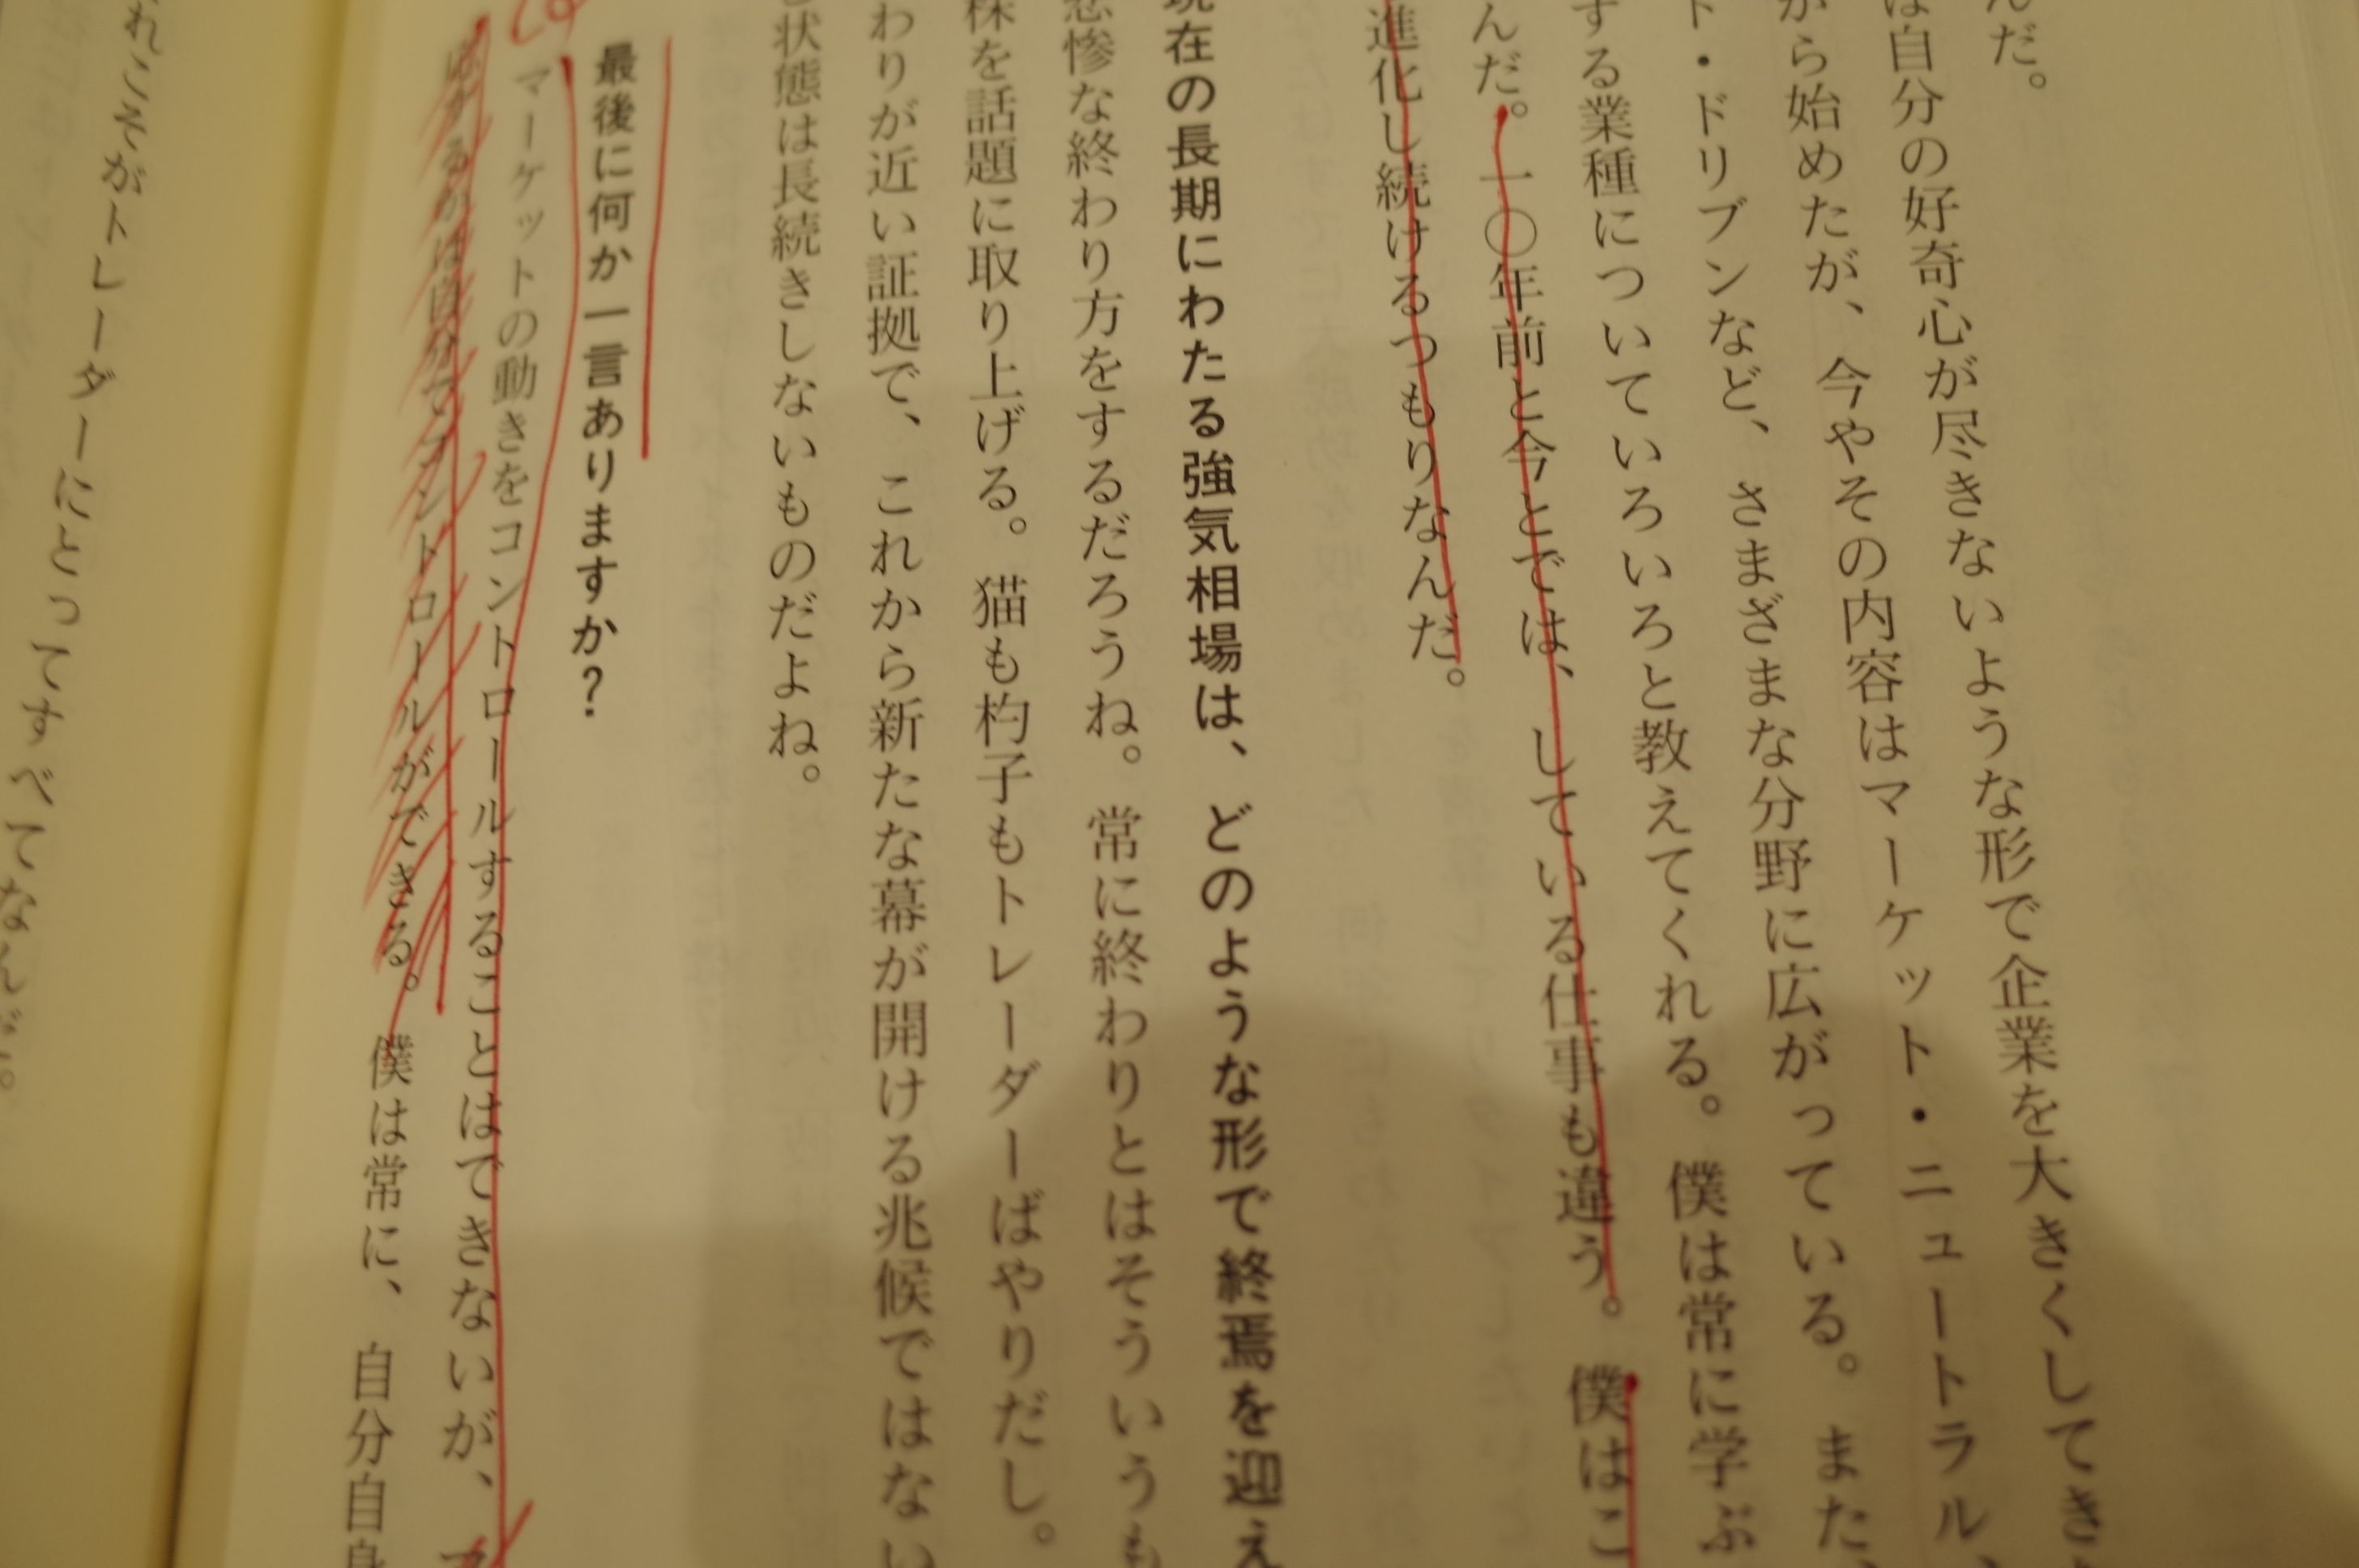 んだ。
は自分の好奇心が尽きないような形で企業を大きくしてき
から始めたが、今やその内容はマーケット・ニュートラル、
ト・ドリブンなど、さまざまな分野に広がっている。また、
する業種についていろいろと教えてくれる。僕は常に学ぶ
んだ。一〇年前と今とでは、している仕事も違う。僕はこ
進化し続けるつもりなんだ。
現在の長期にわたる強気相場は、どのような形で終焉を迎え
悲惨な終わり方をするだろうね。常に終わりとはそういうも
株を話題に取り上げる。猫も杓子もトレーダーばやりだし。
わりが近い証拠で、これから新たな幕が開ける兆候ではない
状態は長続きしないものだよね。
最後に何か一言ありますか?
マーケットの動きをコントロールすることはできないが、マ
応するかは自分でコントロールができる。僕は常に、自分自身
れこそがトレーダーにとってすべてなんだ。